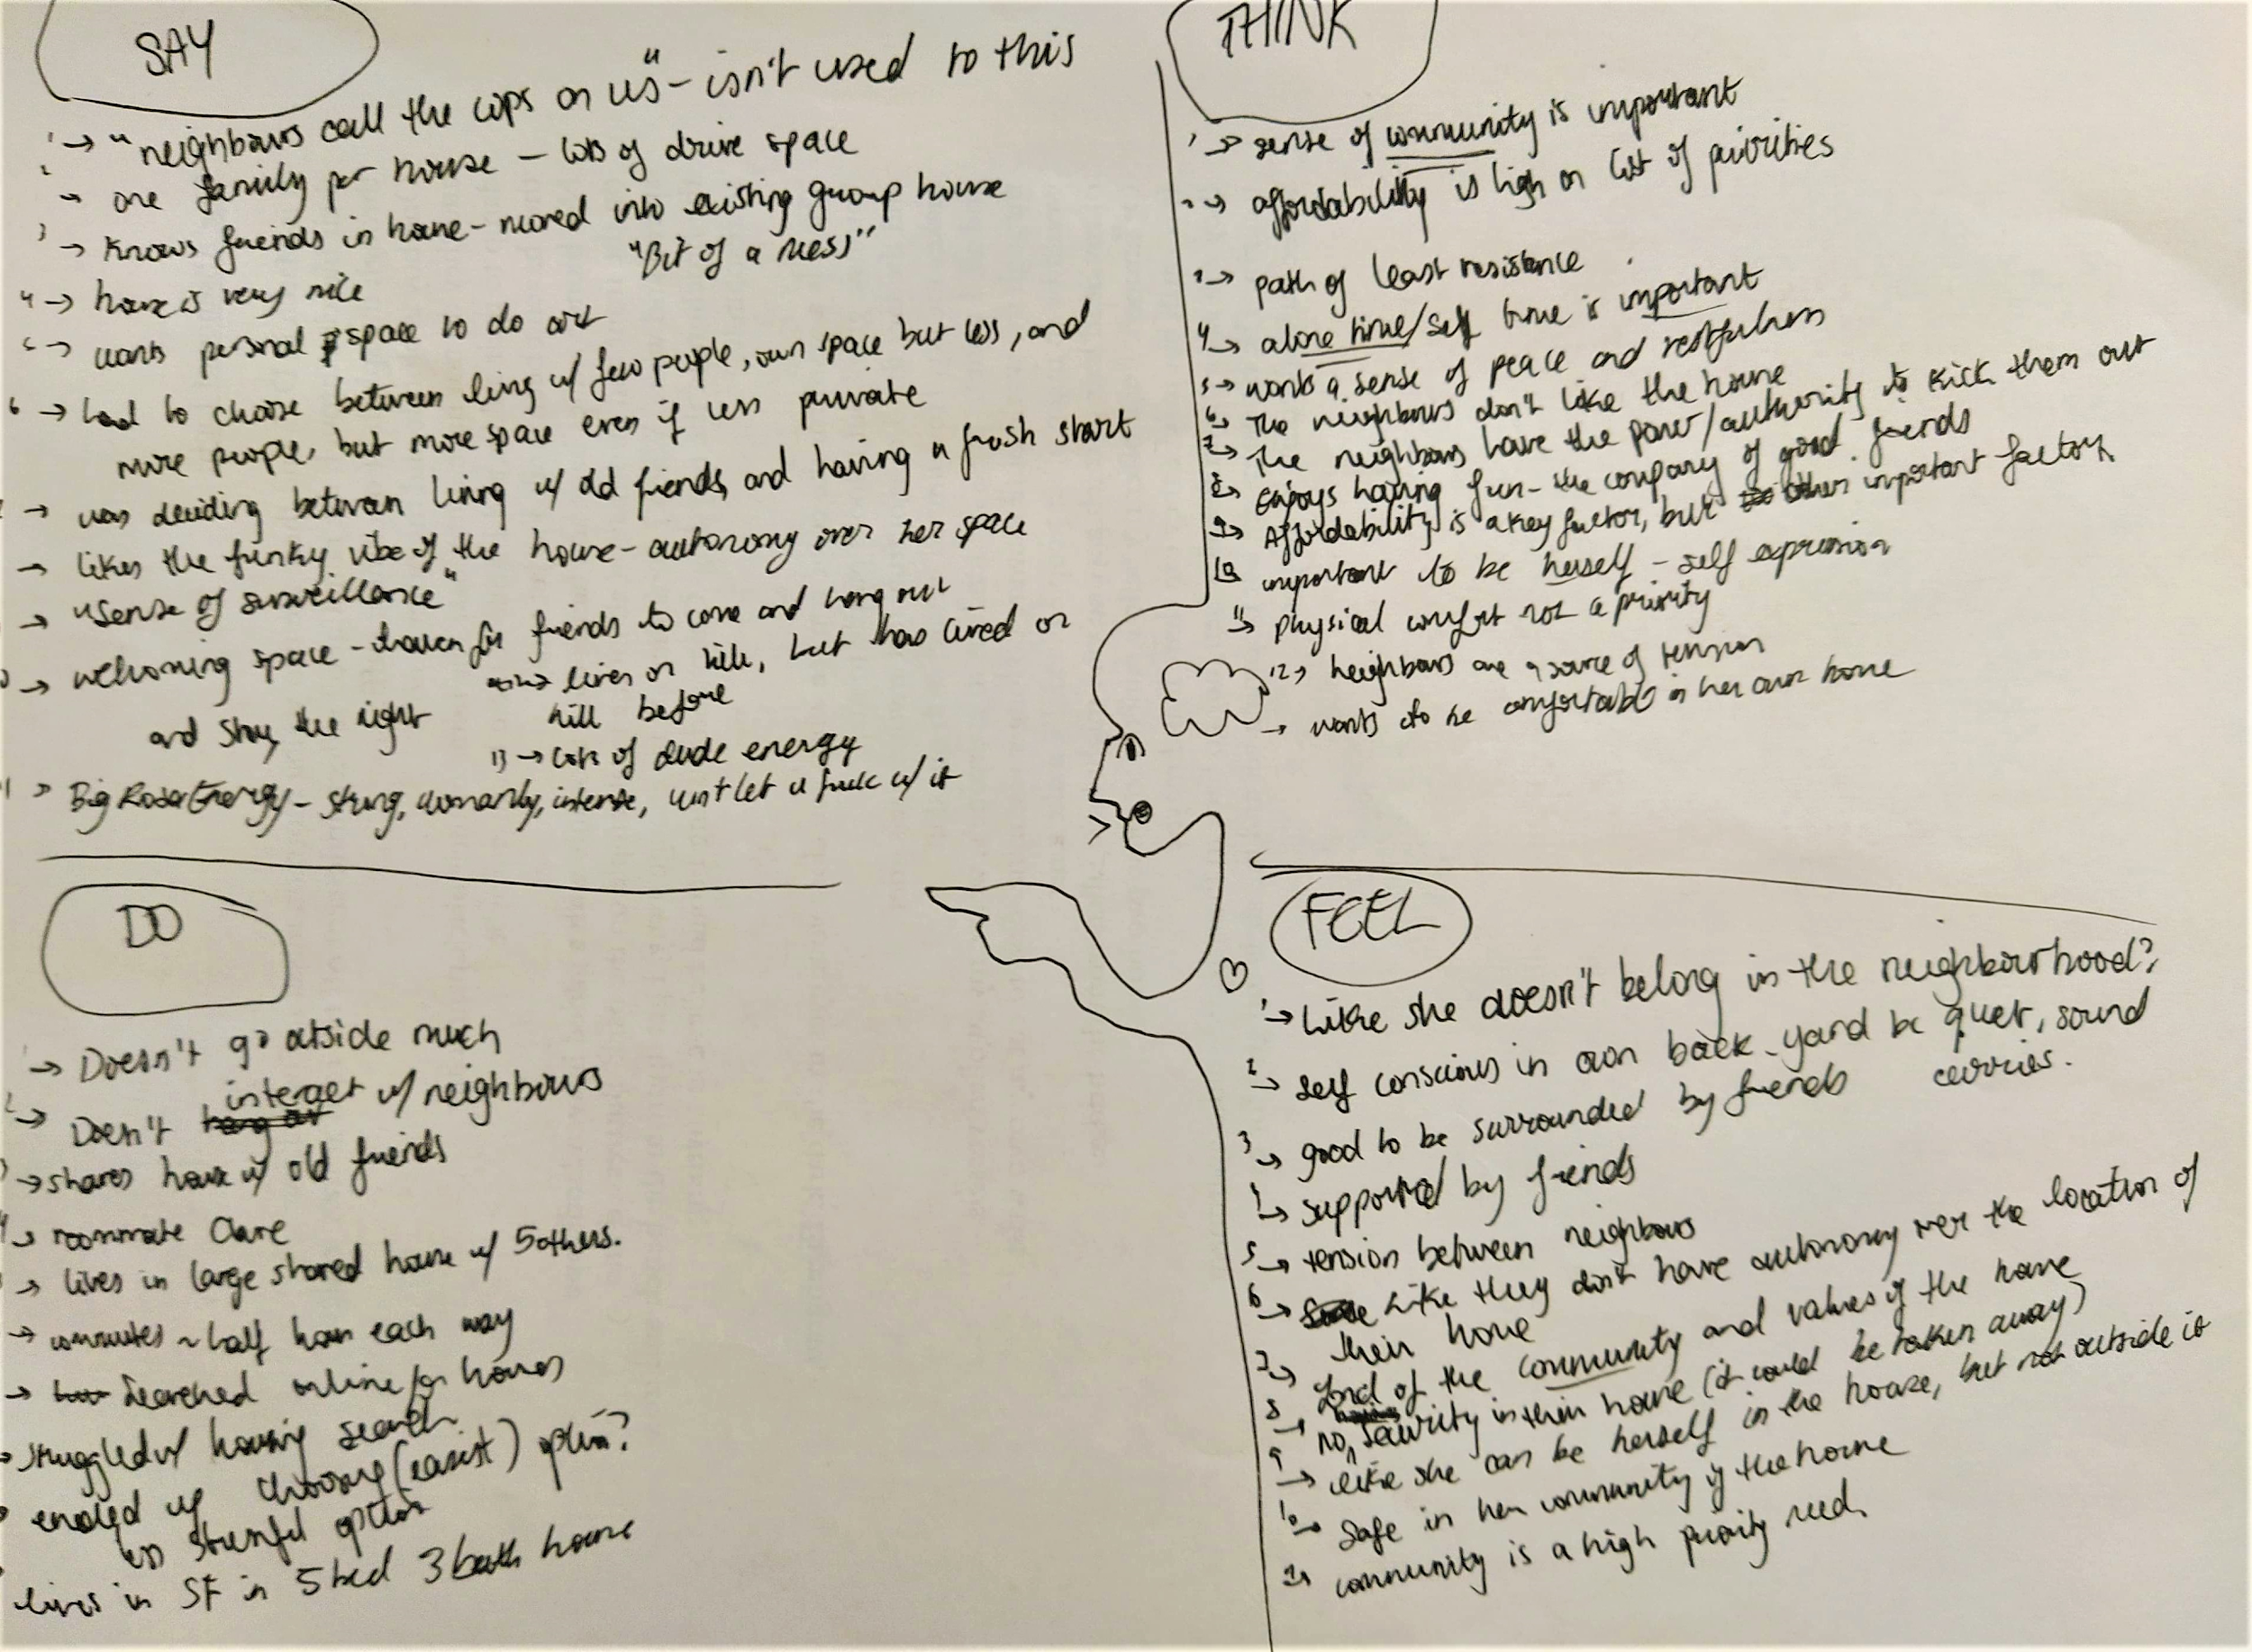 SAY
1 → "neighbours call the cops on us" - isn't used to this
→ one family per house - lots of drive space
3 → knows friends in house - moved into existing group house
"Bit of a mess"
4 → house is very nice
→ wants personal space to do art
6 → had to choose between living w/ few people, own space but less, and
more people, but more space even if less private
→ was deciding between living w/ old friends, and having a fresh start
→ likes the funky vibe of the house - autonomy over her space
→ "sense of surveillance"
→ welcoming space - haven for friends to come and hang out
and stay the night
→ lives on hill, but has lived on
hill before
13 → lots of dude energy
→ Big Rosa Energy - strong, womanly, intense, won't let u fuck w/ it
THINK
1 → sense of community is important
→ affordability is high on list of priorities
→ path of least resistance
4 → alone time/self time is important
5 → wants a sense of peace and restfulness
6 → The neighbours don't like the house
7 → The neighbours have the power/authority to kick them out
8 → Enjoys having fun - the company of good friends
9 → Affordability is a key factor, but other important factors
10 important to be herself - self expression
11 → physical comfort not a priority
12 → neighbours are a source of tension
→ wants to be comfortable in her own home
DO
→ Doesn't go outside much
2 → Doesn't interact w/ neighbours
→ shares house w/ old friends
4 → roommate Clare
→ lives in large shared house w/ 5 others.
→ commutes ~ half hour each way
→ searched online for homes
struggled w/ housing search
ended up choosing (easiest) option?
less stressful option
lives in SF in 5 bed 3 bath house
FEEL
1 → Like she doesn't belong in the neighbourhood?
2 → self conscious in own back-yard be quiet, sound
carries.
3 → good to be surrounded by friends
→ supported by friends
5 → tension between neighbours
6 → Like they don't have autonomy over the location of
their home
7 → fond of the community and values of the home
8 → no security in their home (it could be taken away)
9 → like she can be herself in the house, but not outside it
10 → safe in her community of the home
→ community is a high priority need